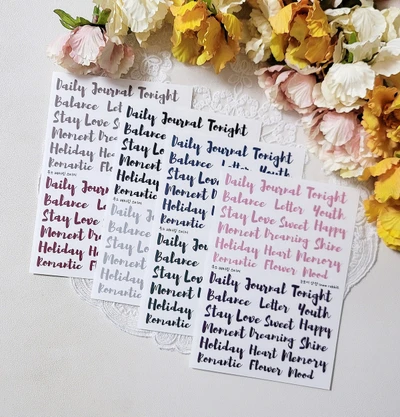 Daily Journal Tonight
Balance Let
Stay Love S
Moment Dre
Holiday He
Romantic F
Daily Jour
Balance Le
Stay Love
Moment D
Holiday H
Romantic
Daily Journal Tonight
Balance
Stay Lo
Moment
Holiday
Romantic
Daily J
Balance
Stay Lo
Moment
Holiday
Romantic
Daily Journal Tonight
Balance Letter Youth
Stay L
Moment
Holida
Romantic
Daily
Balance
Stay Lo
Moment
Holiday
Romantic
Daily Journal Tonight
Balance Letter Youth
Stay Love Sweet Happy
Moment Dreaming Shine
Holiday Heart Memory
Romantic Flower Mood
Daily Journal Tonight
Balance Letter Youth
Stay Love Sweet Happy
Moment Dreaming Shine
Holiday Heart Memory
Romantic Flower Mood